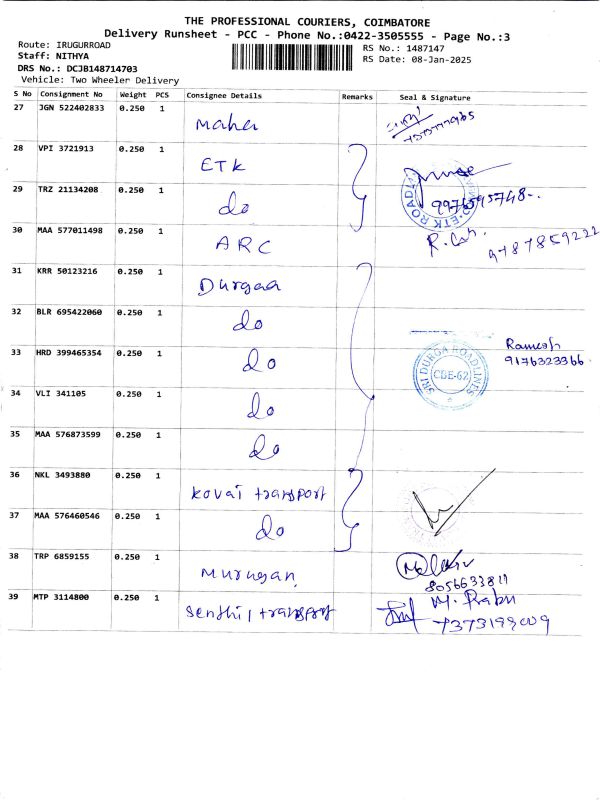 THE PROFESSIONAL COURIERS, COIMBATORE
Delivery Runsheet - PCC - Phone No.:0422-3505555 - Page No.:3
Route: IRUGURROAD
Staff: NITHYA
DRS No.: DCJB148714703
Vehicle: Two Wheeler Delivery
RS No.: 1487147
RS Date: 08-Jan-2025
S No Consignment No Weight PCS Consignee Details Remarks Seal & Signature
27 JGN 522402833 0.250 1 Maher
28 VPI 3721913 0.250 1 ETK
29 TRZ 21134208 0.250 1 do
ETK ROADLI
9976595748
30 MAA 577011498 0.250 1 ARC
9787859222
31 KRR 50123216 0.250 1 Durgaa
32 BLR 695422060 0.250 1 do
33 HRD 399465354 0.250 1 do
SRI DURGA ROADLINES
CBE-62
Ramesh
9176323366
34 VLI 341105 0.250 1 do
35 MAA 576873599 0.250 1 do
36 NKL 3493880 0.250 1 kovai transport
37 MAA 576460546 0.250 1 do
38 TRP 6859155 0.250 1 Murugan
39 MTP 3114800 0.250 1 Senthil transport
M. Prabu